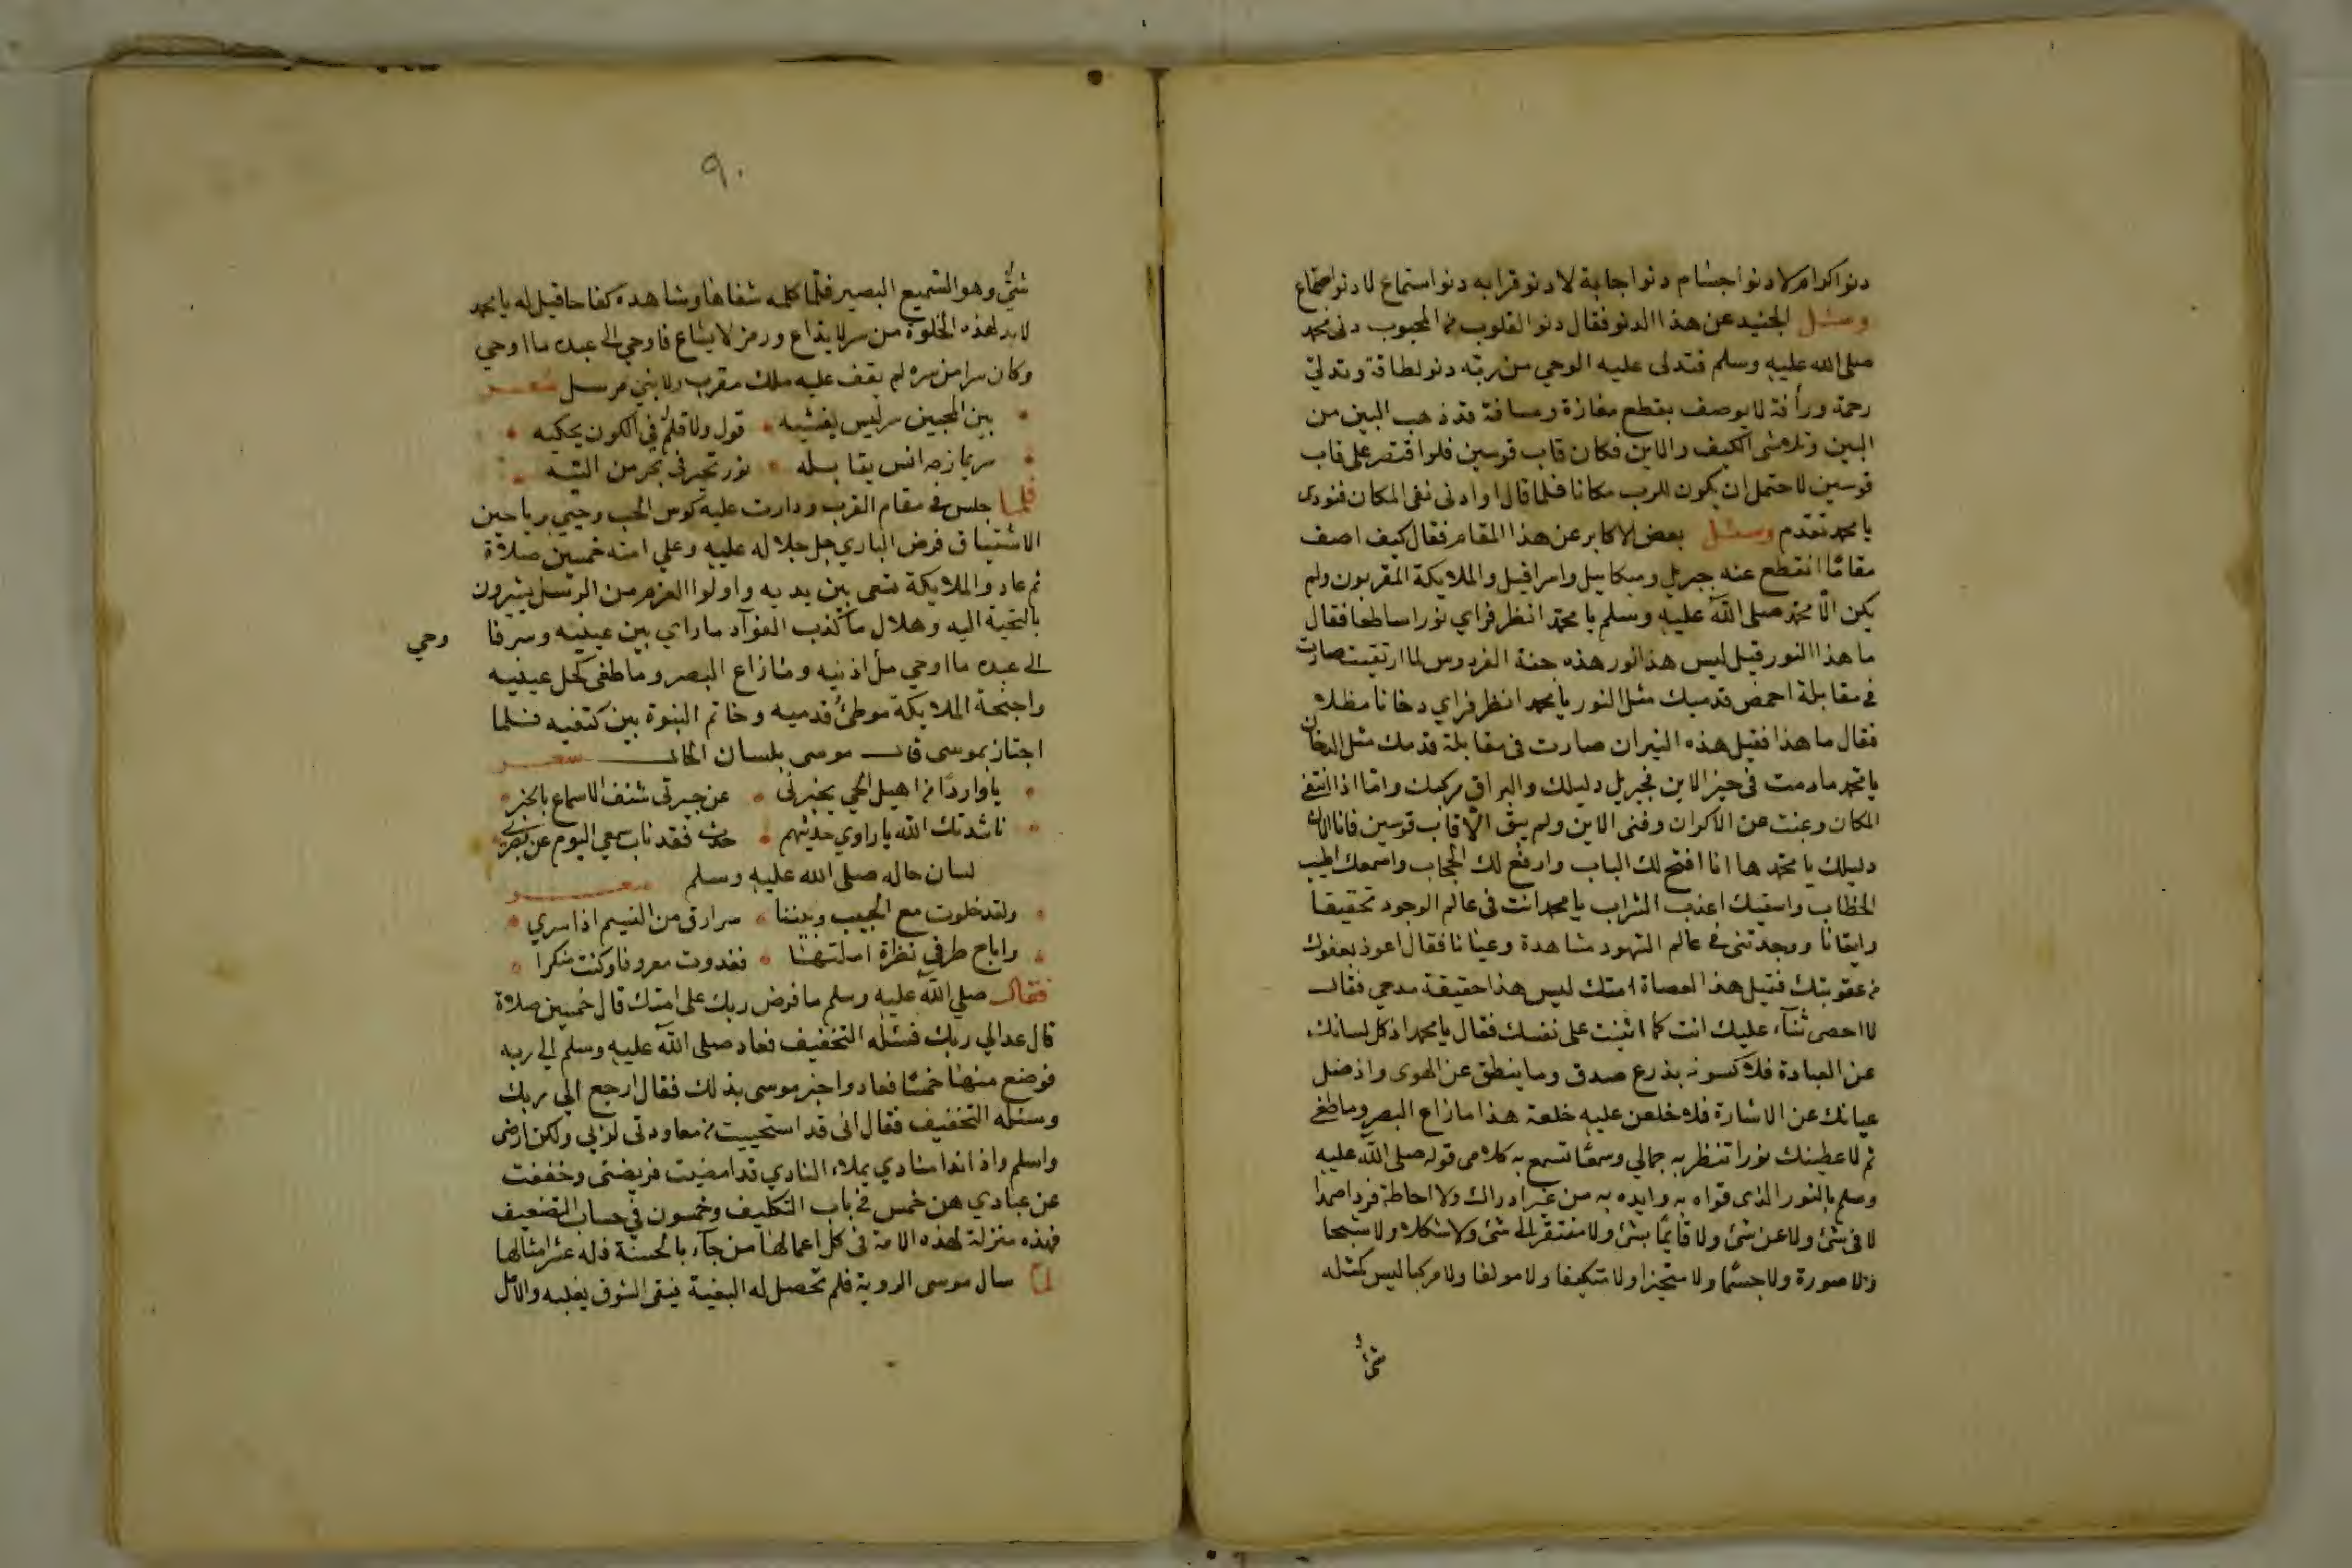 دنو اكرام لا دنو اجسام دنو اجابة لا دنو قرابه دنو استماع لا دنو اجتماع
وسئل الجنيد عن هذا الدنو فقال دنو القلوب من المحبوب دنى محمد
صلى الله عليه وسلم فتدلى عليه الوحي من ربه دنو لطافة وتدلي
رحمة ورأفة لا يوصف بقطع مفازة ومسافة قد ذهب البين من
البين وتلاشى الكيف والاين فكان قاب قوسين فلو اقتصر على قاب
قوسين لاحتمل ان يكون للرب مكانا فلما قال او ادنى نفى المكان فنودى
يا محمد تقدم وسئل بعض الاكابر عن هذا المقام فقال كيف اصف
مقامًا انقطع عنه جبريل وميكاييل واسرافيل والملايكة المقربون ولم
يكن الا محمد صلى الله عليه وسلم يا محمد انظر فراي نورا ساطعا فقال
ما هذا النور قيل ليس هذا نور هذه جنة الفردوس لما ارتقيت صارت
في مقابلة اخمص قدميك مثل النور يا محمد انظر فراي دخانا مظلا
فقال ما هذا فقيل هذه النيران صارت في مقابلة قدمك مثل الدخان
يا محمد ما دمت في حيز الاين فجبريل دليلك والبراق مركبك واما اذا انتفى
المكان وغبت عن الاكوان وفنى الاين ولم يبق الا قاب قوسين فانا
دليلك يا محمد ها انا افتح لك الباب وارفع لك الحجاب واسمعك اطيب
الخطاب واسقيك اعذب الشراب يا محمد انت في عالم الوجود تحقيقا
وايقانا ووجدتنى في عالم الشهود مشاهدة وعيانا فقال اعوذ بعفوك
من عقوبتك فقيل هذا لعصاة امتك ليس هذا حقيقة مدحي فقال
لا احصى ثنآء عليك انت كما اثنيت على نفسك فقال يا محمد اذ كل لسانك
عن العبادة فلاكسونه بذرع صدق وما ينطق عن الهوى واذ ضل
عيانك عن الاشارة فلاخلعن عليه خلعة هذا ما زاغ البصر وما طغى
ثم لاعطينك نورا تنظر به جمالي وسمعًا تسمع به كلامى قوله صلى الله عليه
وسلم بالنور الذى قواه به وايده به من غير ادراك ولا احاطة فردا صمدا
لا في شئ ولا عن شئ ولا قايمًا بشئ ولا مفتقر الى شئ ولا شكلا ولا شبحا
ولا صورة ولا جسمًا ولا متحيزا ولا متكيفا ولا مولفا ولا مركبا ليس كمثله
شئ
٩٠
شئ وهو السميع البصير فلما كلمه شفاها وشاهده كفاحا قيل له يا محمد
لابد لهذه الخلوة من سر لا يذاع ورمز لا يشاع فاوحى الى عبده ما اوحي
وكان سرا من سره لم يقف عليه ملك مقرب ولا نبي مرسل شعر
بين المحبين سر ليس يفشيه قول ولا قلم في الكون يحكيه
سر يمازجه انس يقابله نور تحير في بحر من التيه
فلما جلس في مقام القرب ودارت عليه كوس الحب وحيي برياحين
الاشتياق فرض الباري جل جلاله عليه وعلى امته خمسين صلاة
ثم عاد والملايكة تسعى بين يديه واولوا العزم من الرسل يشيرون
بالتحية اليه وهلال ما كذب الفوآد ما راي بين عينيه وسر فا
وحي
الى عبده ما اوحي مل اذنيه وما زاغ البصر وما طغى كحل عينيه
واجنحة الملايكة موطئ قدميه وخاتم النبوة بين كتفيه فلما
اجتاز بموسى قال موسى بلسان الحال شعر
يا واردًا من اهيل الحي يخبرنى عن جيرتي شنف الاسماع بالخبر
ناشدتك الله يا راوي حديثهم حدث فقد ناب سمعي اليوم عن بصري
لسان حاله صلى الله عليه وسلم شعر
ولقد خلوت مع الحبيب وبيننا سر ارق من النسيم اذا سري
واباح طرفي نظرة املتها فغدوت معروفا وكنت منكرا
فقال صلي الله عليه وسلم ما فرض ربك على امتك قال خمسين صلاة
قال عد الي ربك فسئله التخفيف فعاد صلى الله عليه وسلم الي ربه
فوضع منها خمسًا فعاد واخبر موسى بذلك فقال ارجع الي ربك
وسئله التخفيف فقال انى قد استحييت من معاودتى لربي ولكن ارض
واسلم واذا ندا منادي يملاء النادي قد امضيت فريضتى وخففت
عن عبادي هن خمس في باب التكليف وخمسون في حساب التضعيف
فهذه منزلة لهذه الامة فى كل اعمالها من جآء بالحسنة فله عشر امثالها
لما سال موسى الروية فلم تحصل له البغية فبقى الشوق يغلبه والامل